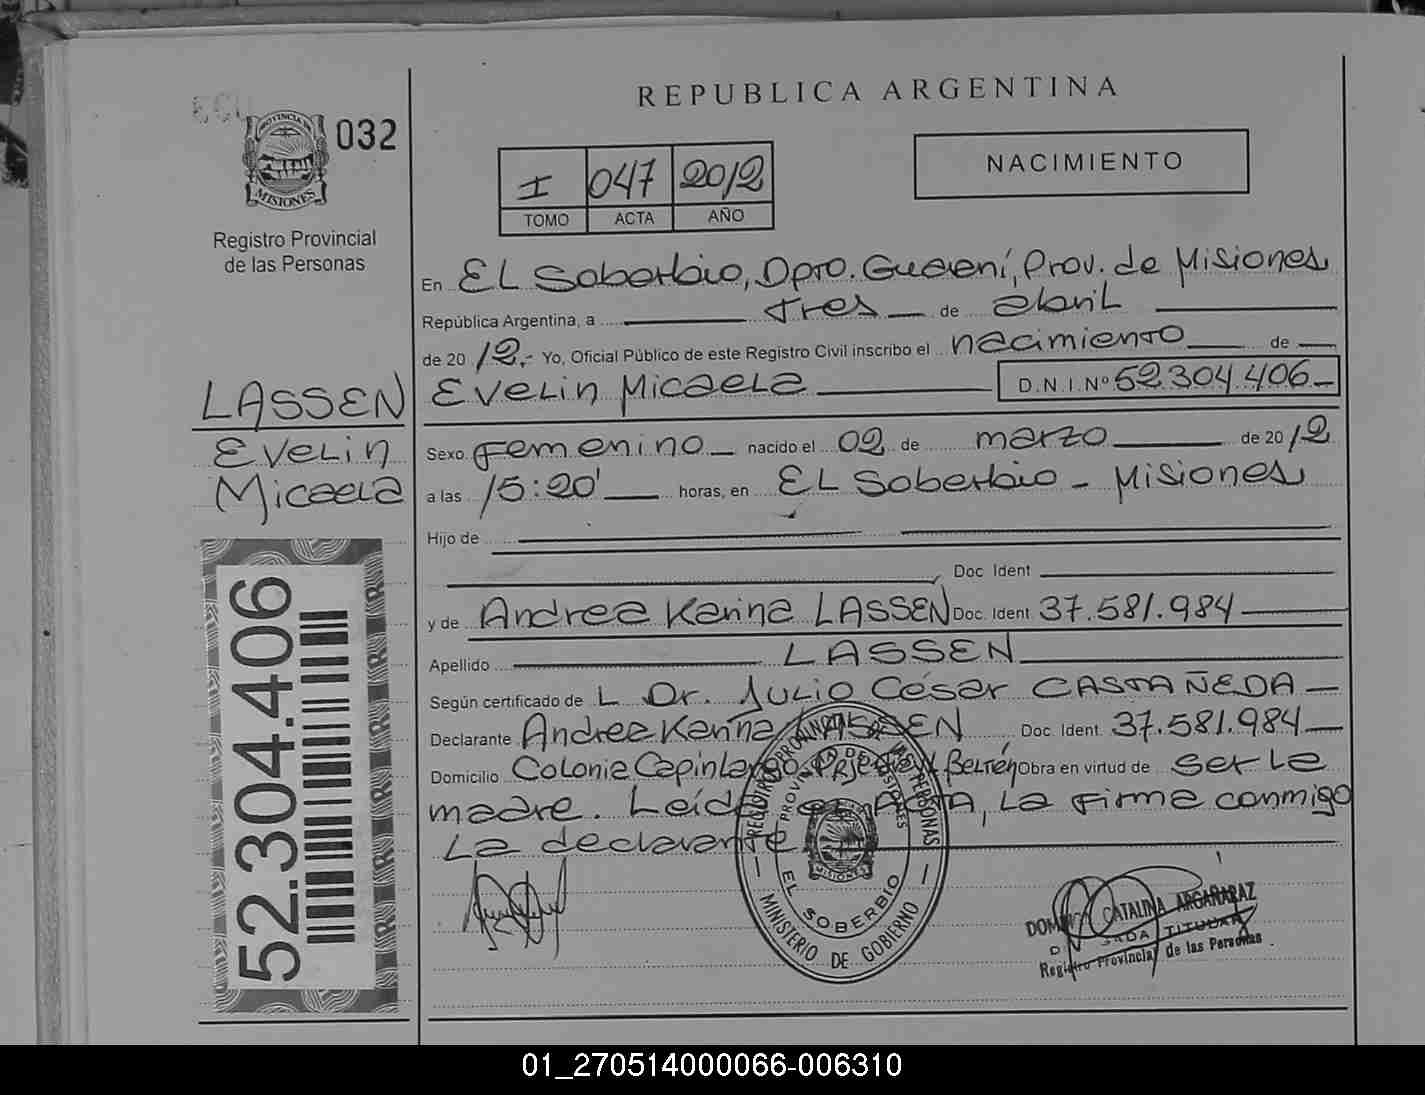 REPUBLICA ARGENTINA
032
PROVINCIA DE
MISIONES
Registro Provincial
de las Personas
I 047 2012
TOMO ACTA AÑO
NACIMIENTO
En EL Soberbio, Dpto. Guaraní, Prov. de Misiones
República Argentina, a tres de abril
de 2012.- Yo, Oficial Público de este Registro Civil inscribo el nacimiento de
Evelin Micaela D.N.I.Nº 52.304.406
LASSEN
Evelin
Micaela
Sexo Femenino nacido el 02 de marzo de 2012
a las 15:20' horas, en EL Soberbio - Misiones
Hijo de
Doc. Ident
y de Andrea Karina LASSEN Doc. Ident 37.581.984
Apellido LASSEN
Según certificado de L Dr. Julio César CASTAÑEDA
Declarante Andrea Karina LASSEN Doc. Ident. 37.581.984
Domicilio Colonia Beltrán Obra en virtud de ser la
madre. Leída el Acta, La firma conmigo
La declarante
52.304.406
REGISTRO PROVINCIAL DE LAS PERSONAS
PROVINCIA DE MISIONES
MISIONES
EL SOBERBIO
MINISTERIO DE GOBIERNO
CATALINA ARGAÑARAZ
TITULAR
Registro Provincial de las Personas
01_270514000066-006310